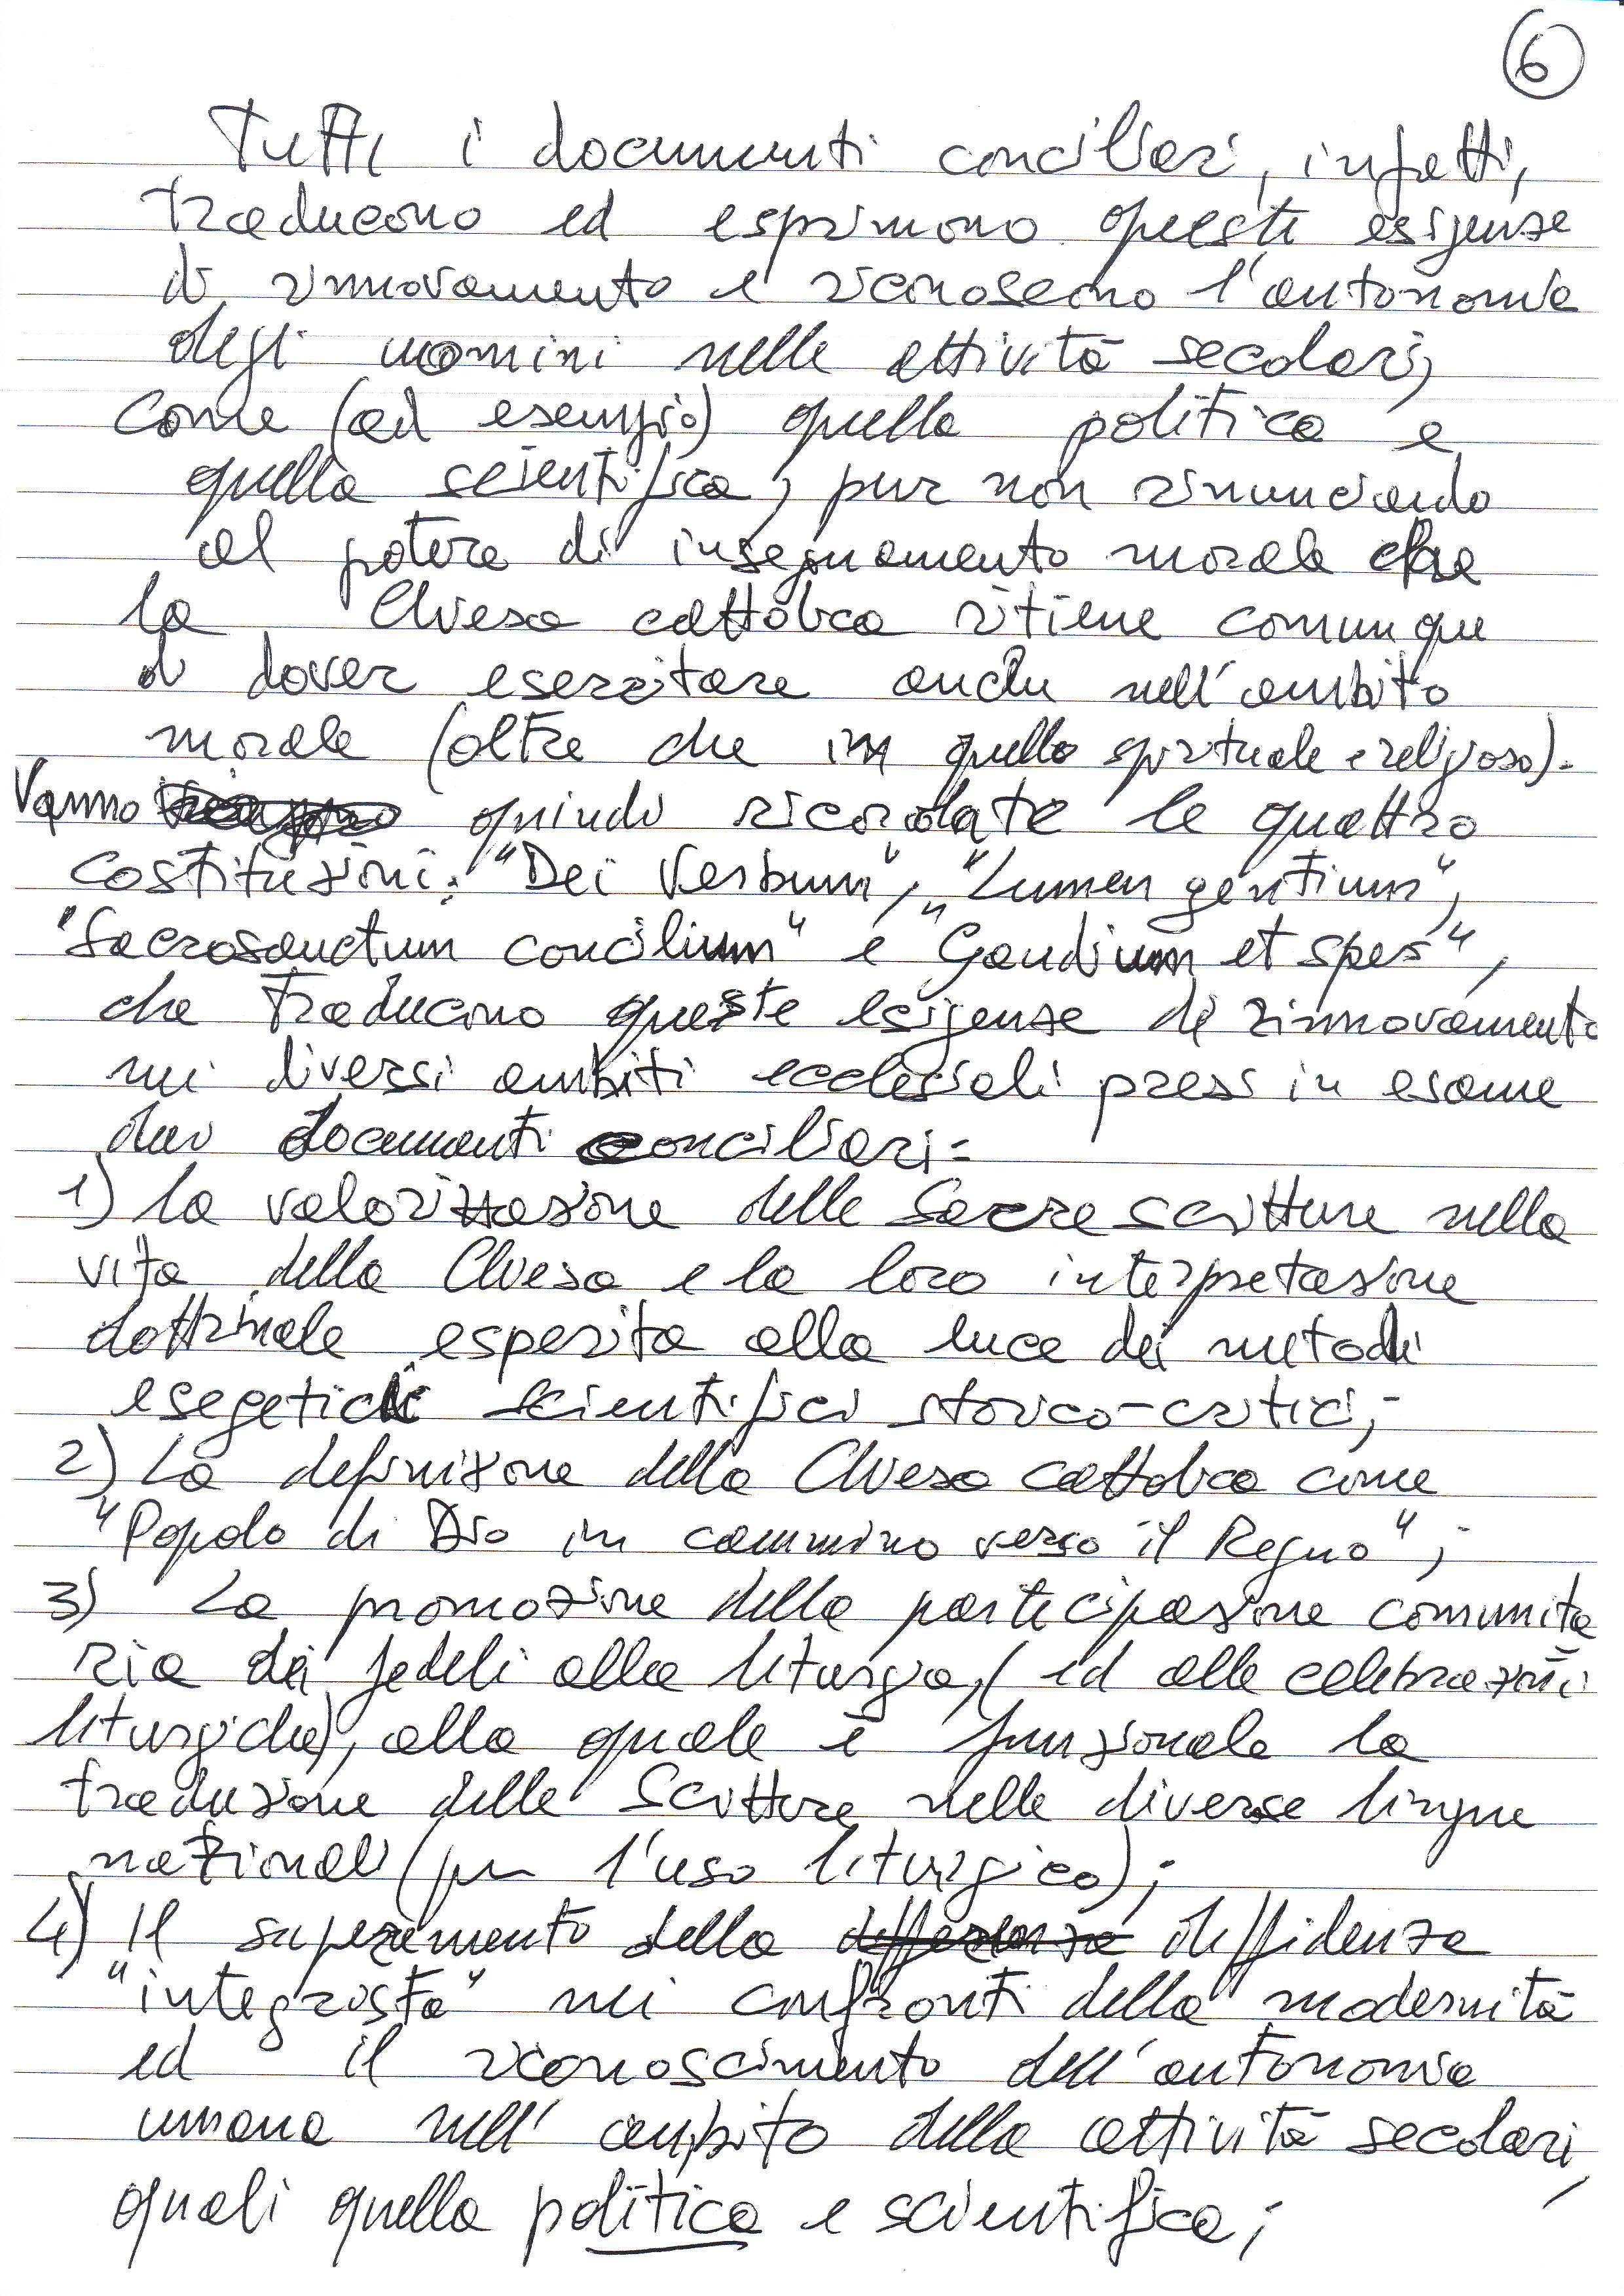 6
Tutti i documenti conciliari, infatti,
traducono ed esprimono queste esigenze
di rinnovamento e riconoscono l'autonomia
degli uomini nelle attività secolari,
come (ad esempio) quella politica e
quella scientifica, pur non rinunciando
al potere di insegnamento morale che
la Chiesa cattolica ritiene comunque
di dover esercitare anche nell'ambito
morale (oltre che in quello spirituale e religioso).
Vanno quindi ricordate le quattro
costituzioni: "Dei Verbum", "Lumen gentium",
"Sacrosanctum concilium" e "Gaudium et spes",
che traducono queste esigenze di rinnovamento
nei diversi ambiti ecclesiali presi in esame
dai documenti conciliari=
1) la valorizzazione delle Sacre scritture nella
vita della Chiesa e la loro interpretazione
dottrinale esperita alla luce dei metodi
esegetici scientifici storico-critici;
2) La definizione della Chiesa cattolica come
"Popolo di Dio in cammino verso il Regno";
3) La promozione della partecipazione comunita
ria dei fedeli alla liturgia, (ed alle celebrazioni
liturgiche), alla quale è funzionale la
traduzione delle Scritture nelle diverse lingue
nazionali (per l'uso liturgico);
4) Il superamento della differenza diffidenza
"integrista" nei confronti della modernità
ed il riconoscimento dell'autonomia
umana nell'ambito della attività secolari,
quali quella politica e scientifica;